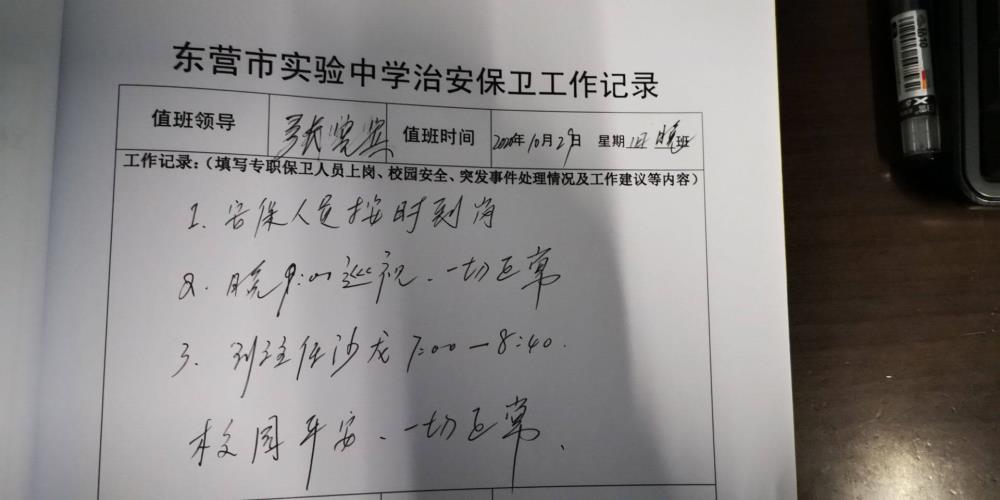 东营市实验中学治安保卫工作记录
值班领导 张 宾 值班时间 2020年10月29日 星期四 晚班
工作记录:(填写专职保卫人员上岗、校园安全、突发事件处理情况及工作建议等内容)
1. 安保人员按时到岗
2. 晚9:00巡视、一切正常
3. 班主任沙龙 7:00—8:40.
校园平安、一切正常、